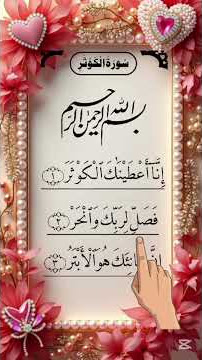 سورة الكوثر
بسم الله الرحمن الرحيم
إِنَّا أَعْطَيْنَاكَ الْكَوْثَرَ ۝١
فَصَلِّ لِرَبِّكَ وَانْحَرْ ۝٢
هُوَ الْأَبْتَرُ ۝٣